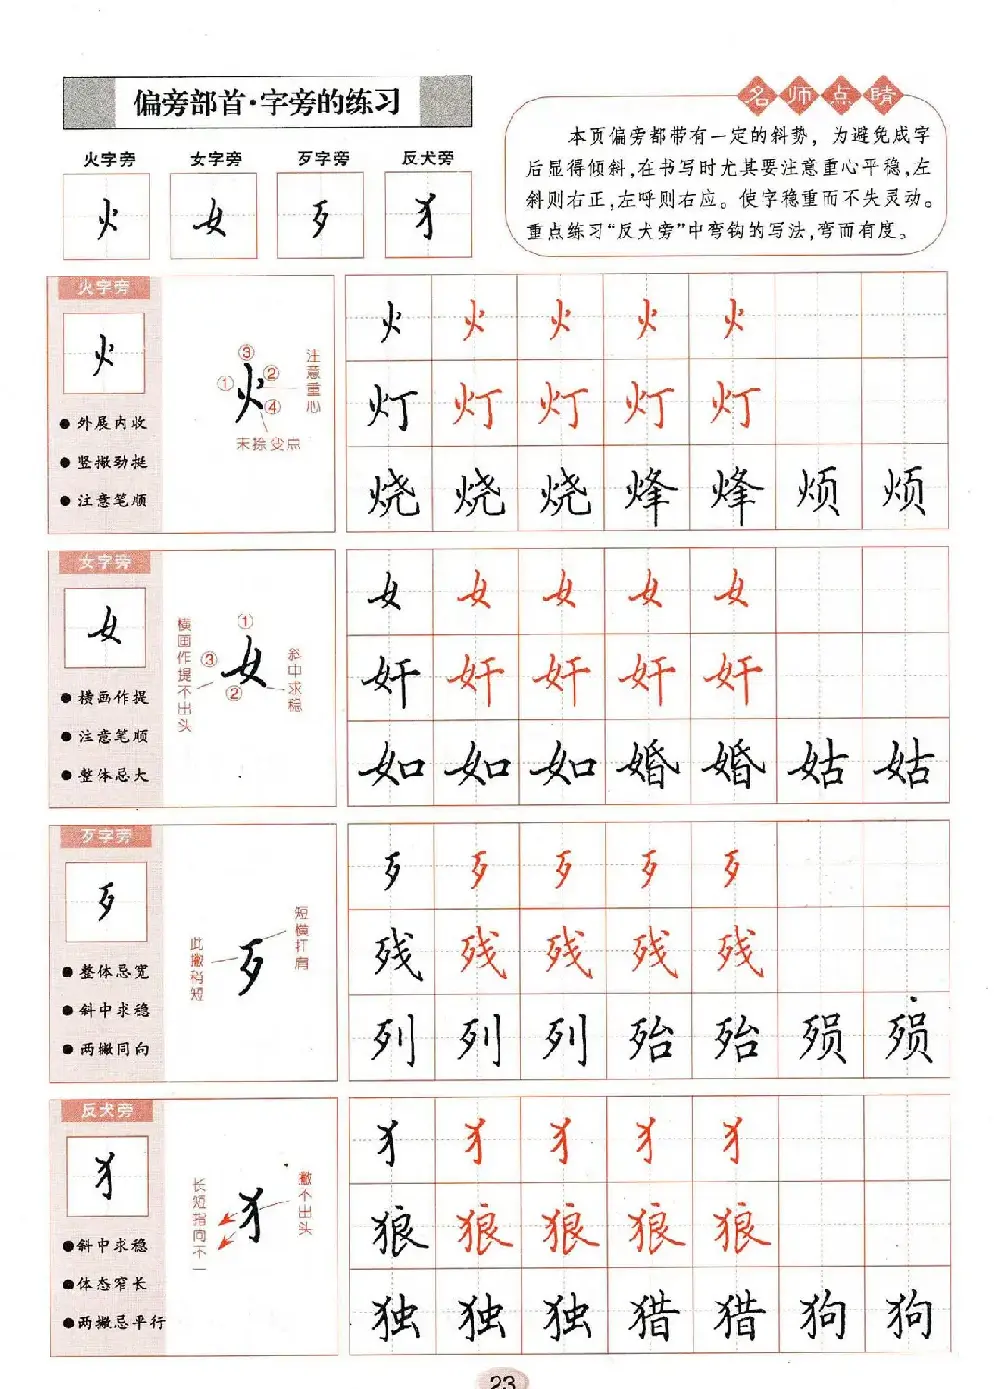 偏旁部首·字旁的练习
名师点睛
火字旁 女字旁 歹字旁 反犬旁
火 女 歹 犭
本页偏旁都带有一定的斜势，为避免成字
后显得倾斜,在书写时尤其要注意重心平稳,左
斜则右正,左呼则右应。使字稳重而不失灵动。
重点练习“反犬旁”中弯钩的写法,弯而有度。
火字旁
火
●外展内收
●竖撇劲挺
●注意笔顺
③
①
②
④
火
注意重心
末捺变点
火 火 火 火 火
灯 灯 灯 灯 灯
烧 烧 烧 烽 烽 烦 烦
女字旁
女
●横画作提
●注意笔顺
●整体忌大
横画作提不出头
①
③
②
女
斜中求稳
女 女 女 女 女
奸 奸 奸 奸 奸
如 如 如 婚 婚 姑 姑
歹字旁
歹
●整体忌宽
●斜中求稳
●两撇同向
此撇稍短
歹
短横扛肩
歹 歹 歹 歹 歹
残 残 残 残 残
列 列 列 殆 殆 殒 殒
反犬旁
犭
●斜中求稳
●体态窄长
●两撇忌平行
长短指向不一
犭
撇不出头
犭 犭 犭 犭 犭
狼 狼 狼 狼 狼
独 独 独 猎 猎 狗 狗
23